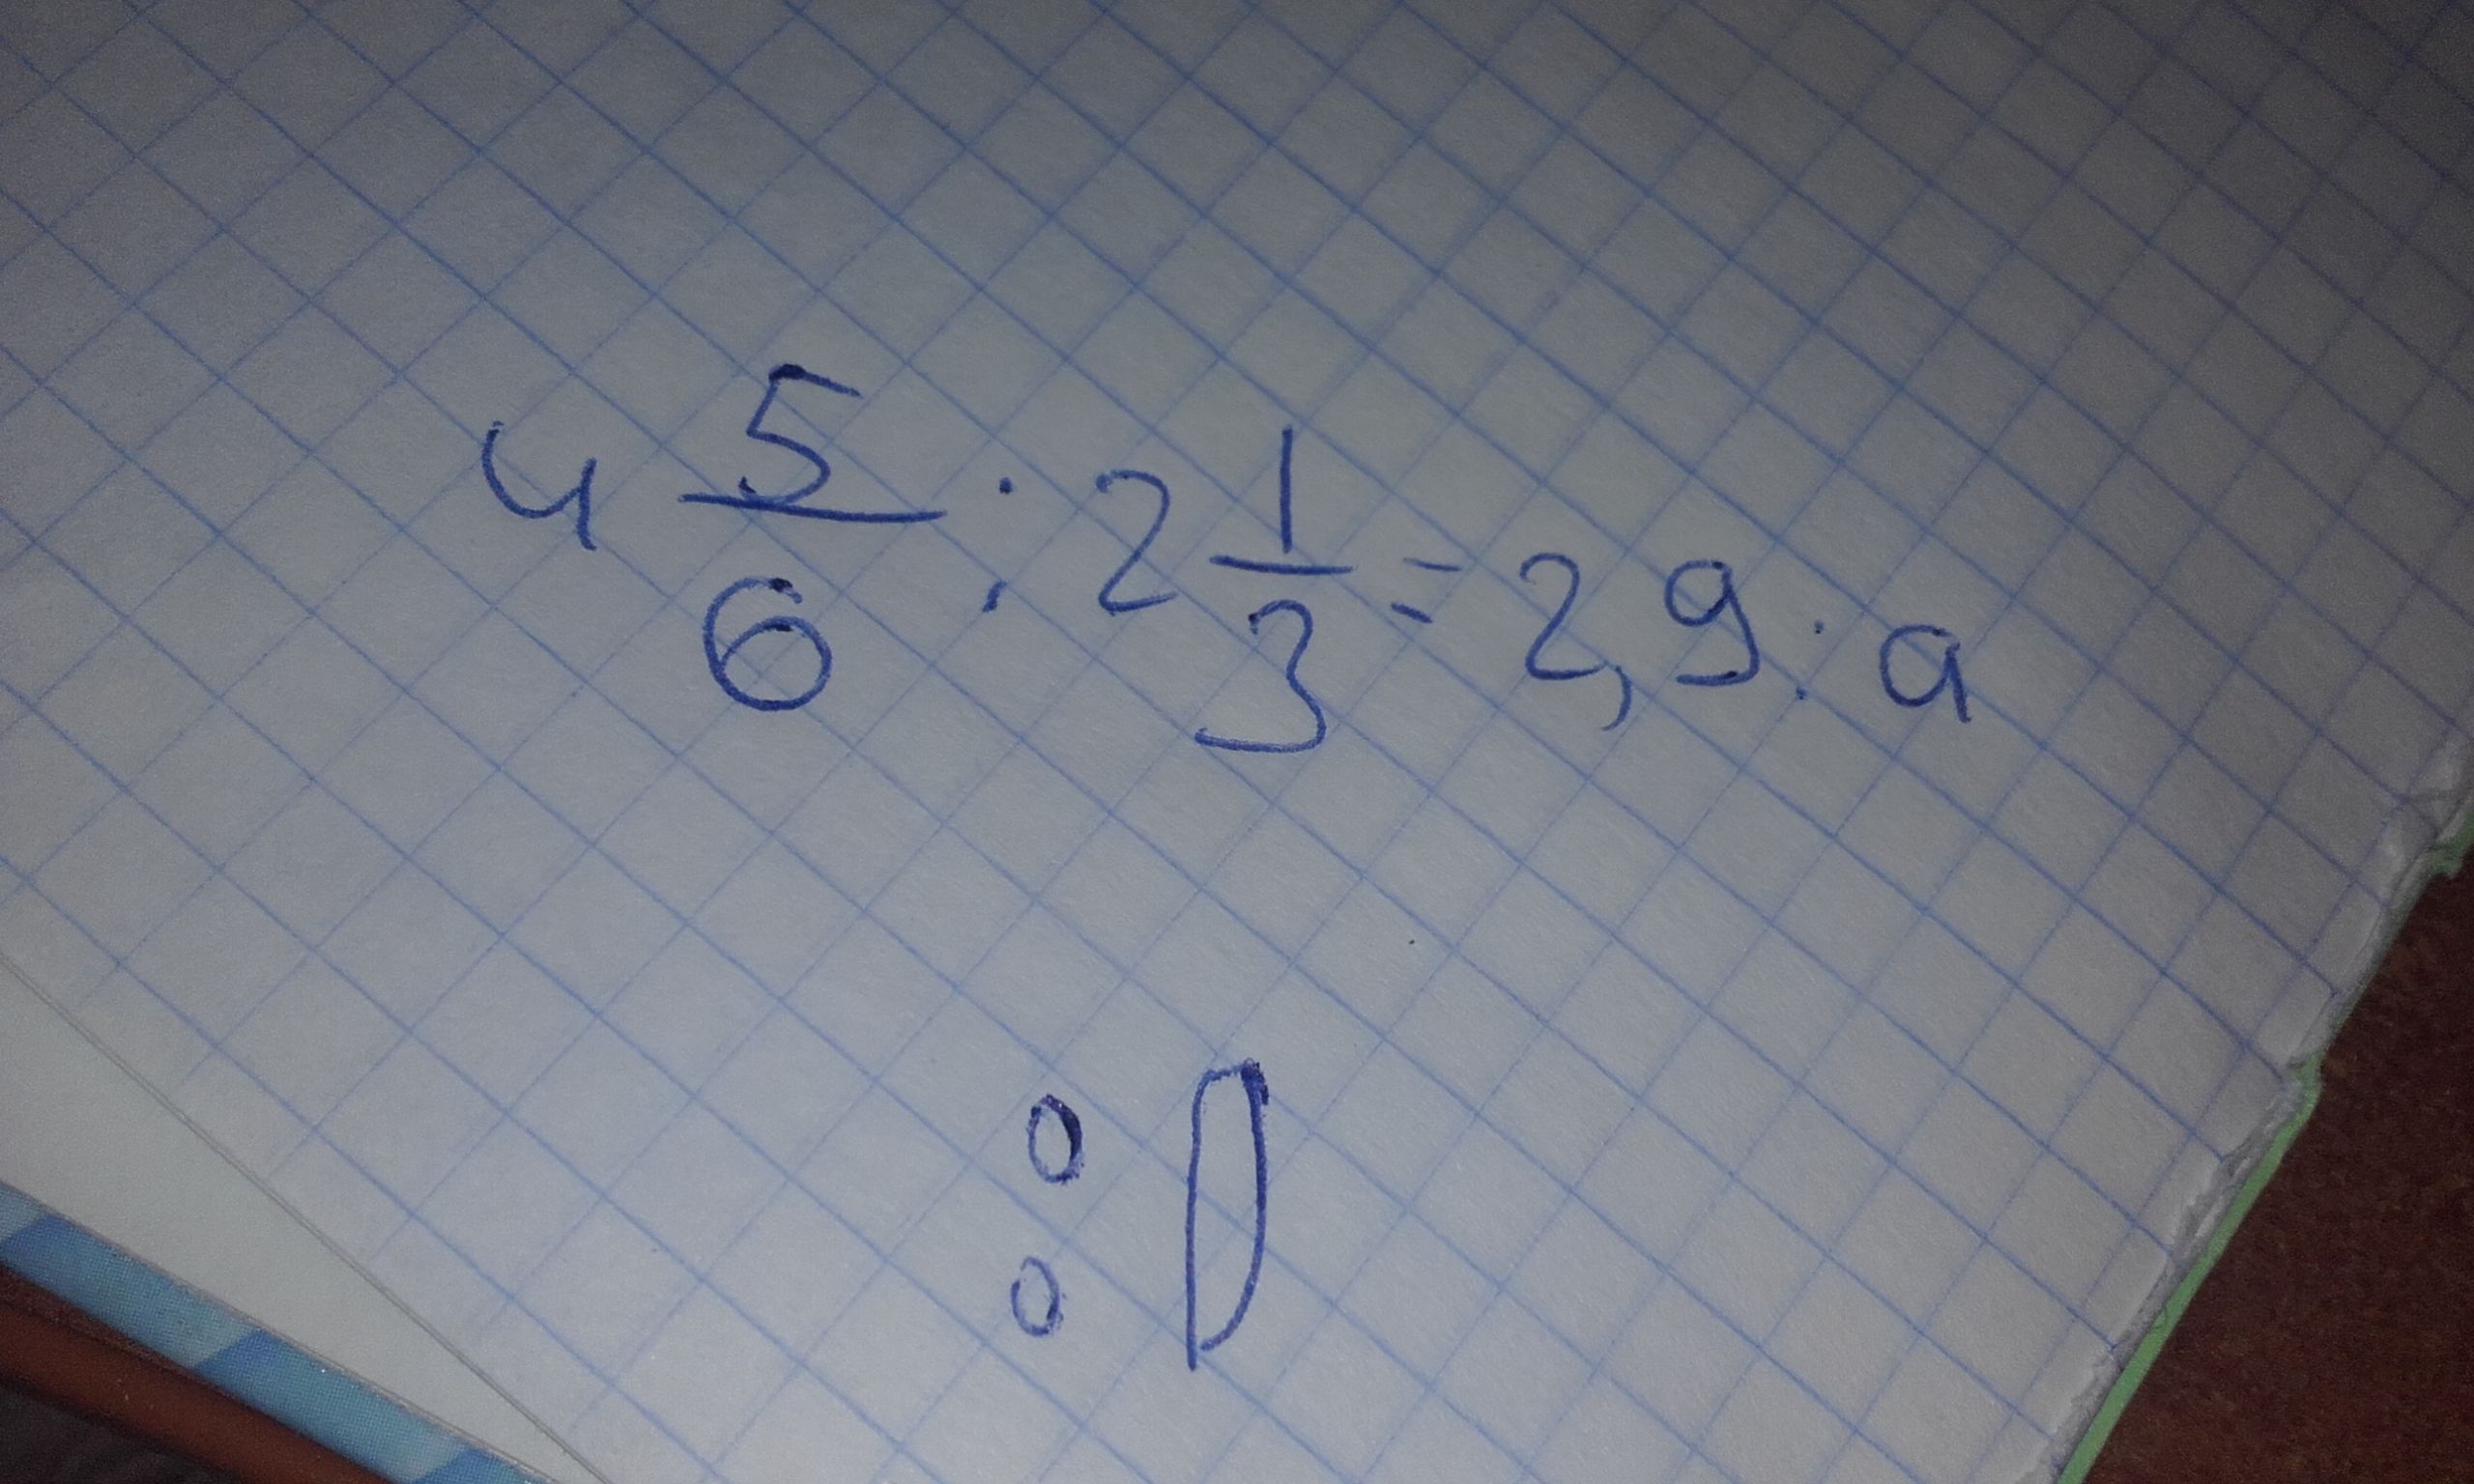 4 5/6 : 2 1/3 = 2,9 : a
:D